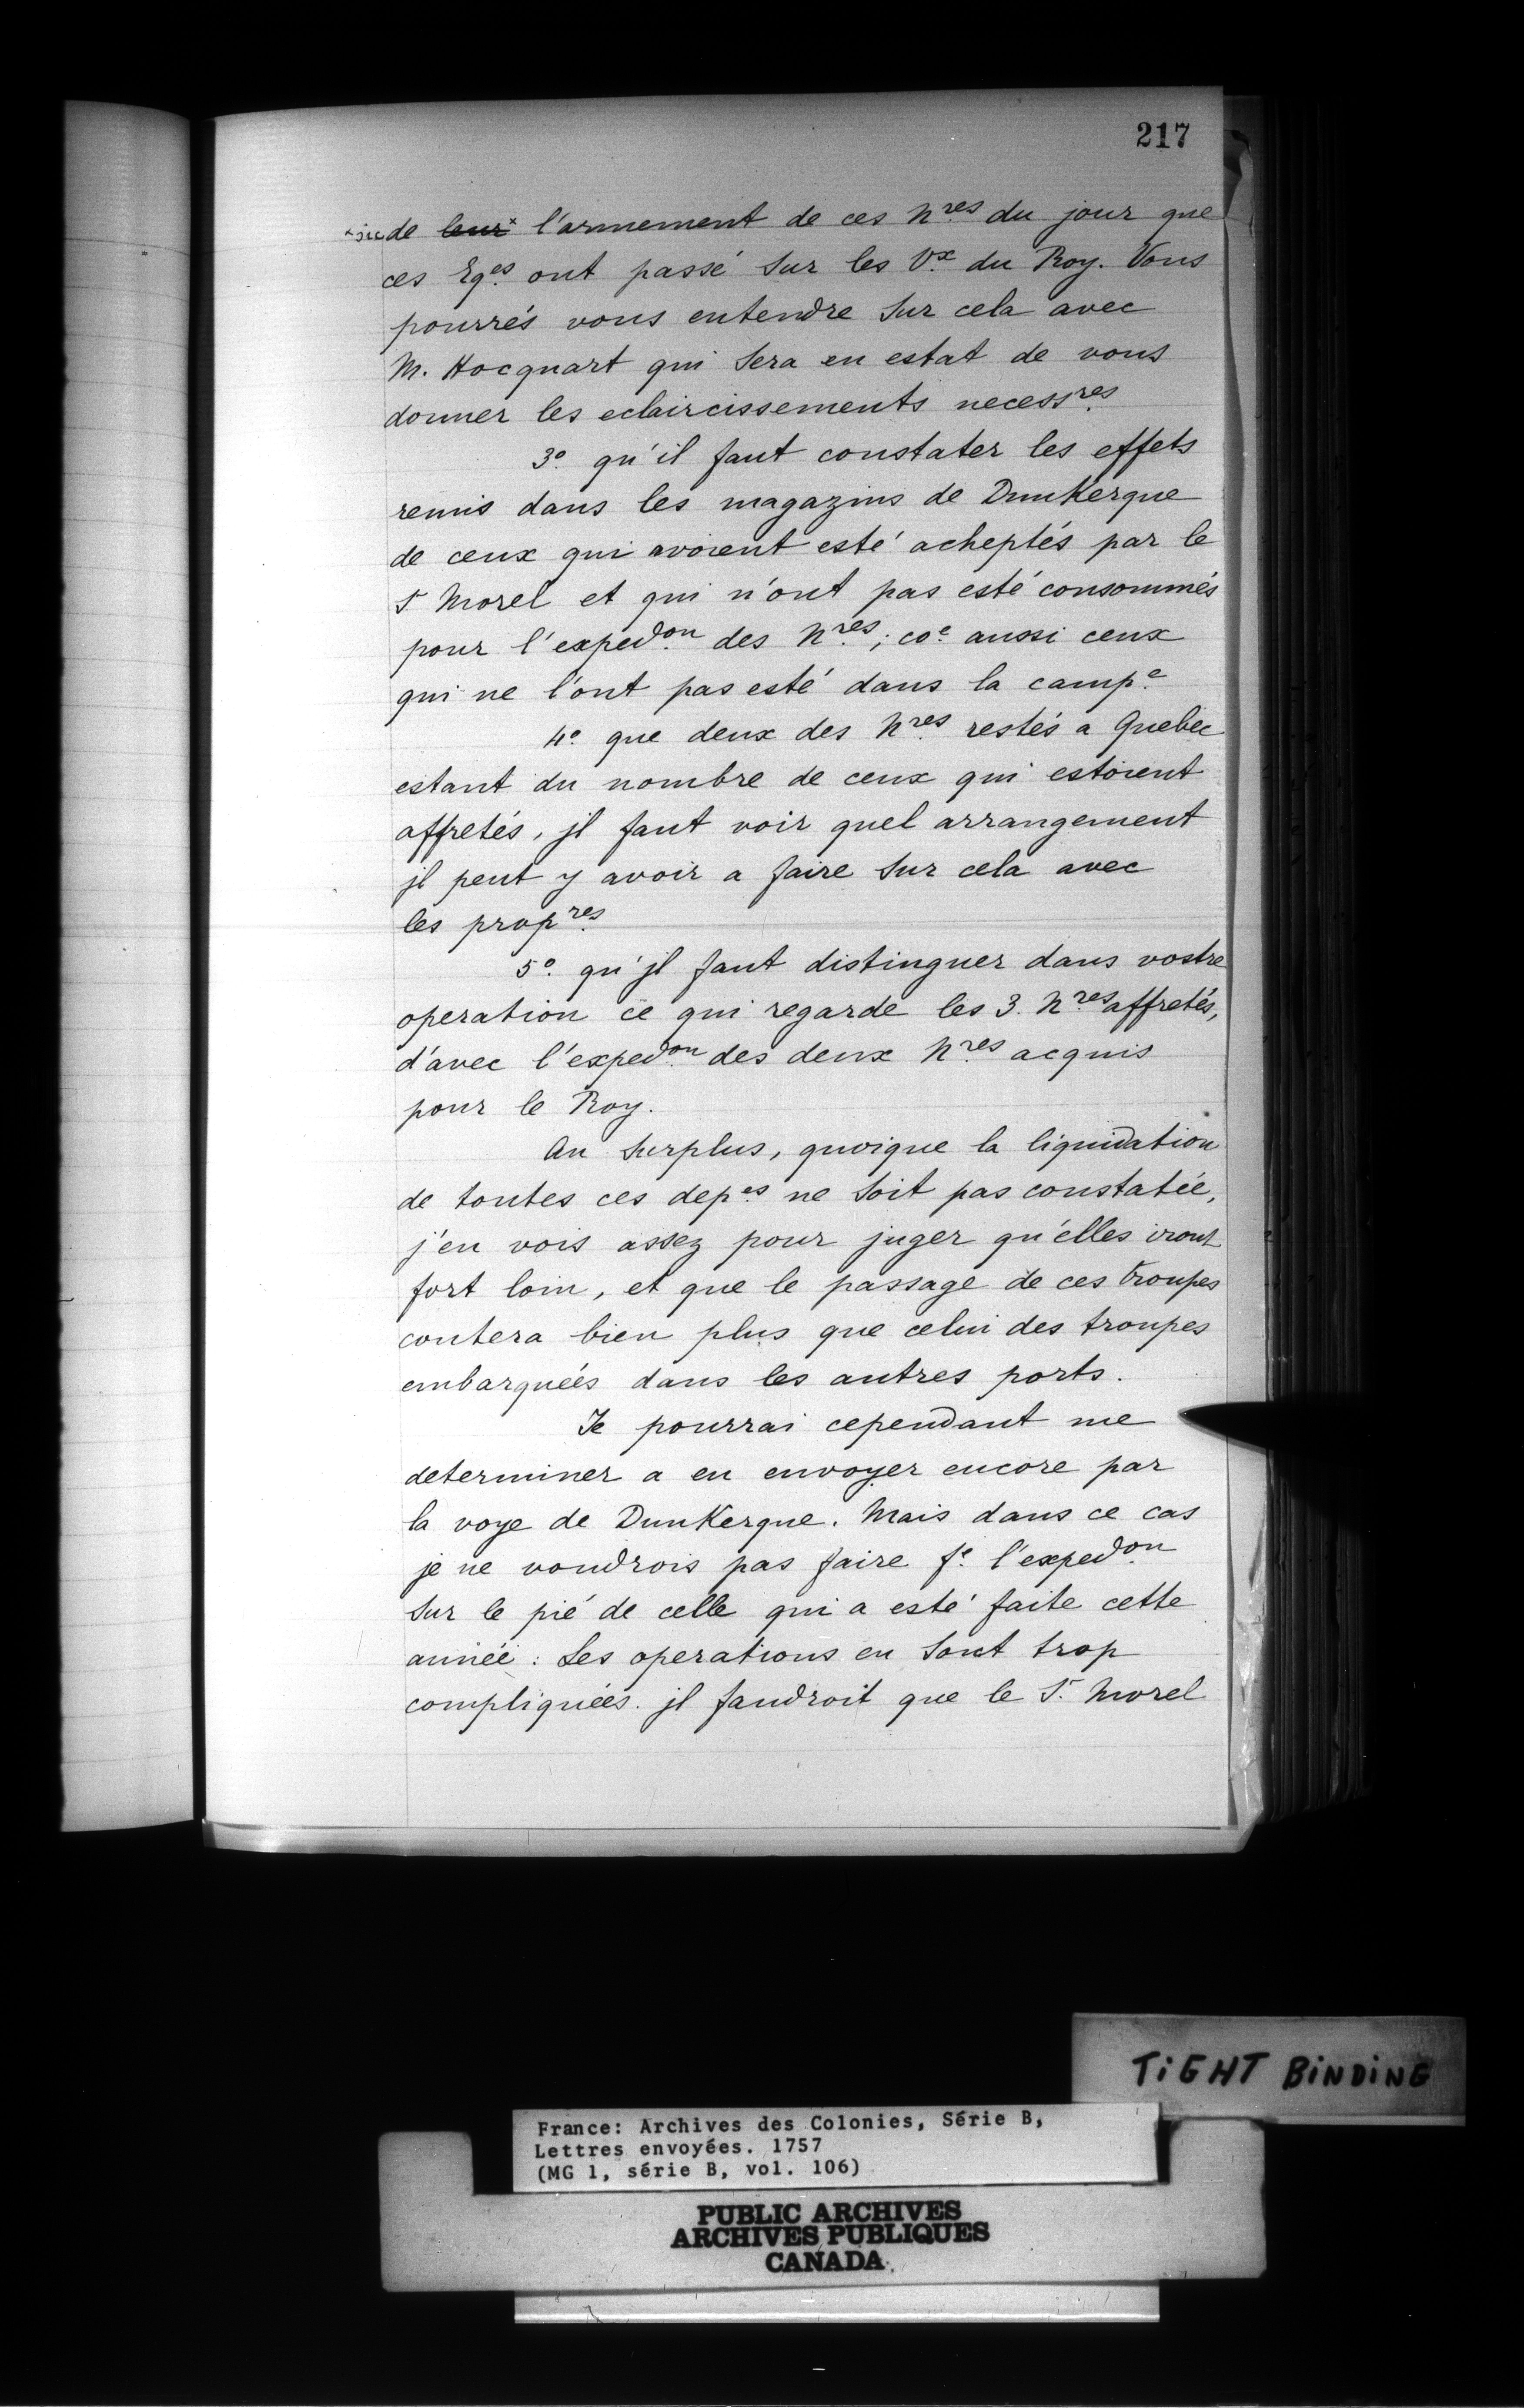 217
*sic de ~~leur~~* l'armement de ces Nres du jour que
ces Eqes ont passé sur les Vx du Roy. Vous
pourrés vous entendre sur cela avec
M. Hocquart qui sera en estat de vous
donner les eclaircissements necessres
3o. qu'il faut constater les effets
remis dans les magazins de DunKerque
de ceux qui avoient esté acheptés par le
Sr Morel et qui n'ont pas esté consommés
pour l'expedon des Nres; coe aussi ceux
qui ne l'ont pas esté dans la campe
4o. que deux des Nres restés a Quebec
estant du nombre de ceux qui estoient
affretés, jl faut voir quel arrangement
jl peut y avoir a faire sur cela avec
les propres
5o. qu'jl faut distinguer dans vostre
operation ce qui regarde les 3. Nres affretés,
d'avec l'expedon des deux Nres acquis
pour le Roy.
Au surplus, quoique la liquidation
de toutes ces depes ne soit pas constatée,
j'en vois assez pour juger qu'elles iront
fort loin, et que le passage de ces troupes
coutera bien plus que celui des troupes
embarquées dans les autres ports.
Je pourrai cependant me
determiner a en envoyer encore par
la voye de DunKerque. Mais dans ce cas
je ne voudrois pas faire fe l'expedon
sur le pié de celle qui a esté faite cette
année : Les operations en sont trop
compliquées. jl faudroit que le Sr Morel
TIGHT BINDING
France: Archives des Colonies, Série B,
Lettres envoyées. 1757
(MG 1, série B, vol. 106)
PUBLIC ARCHIVES
ARCHIVES PUBLIQUES
CANADA